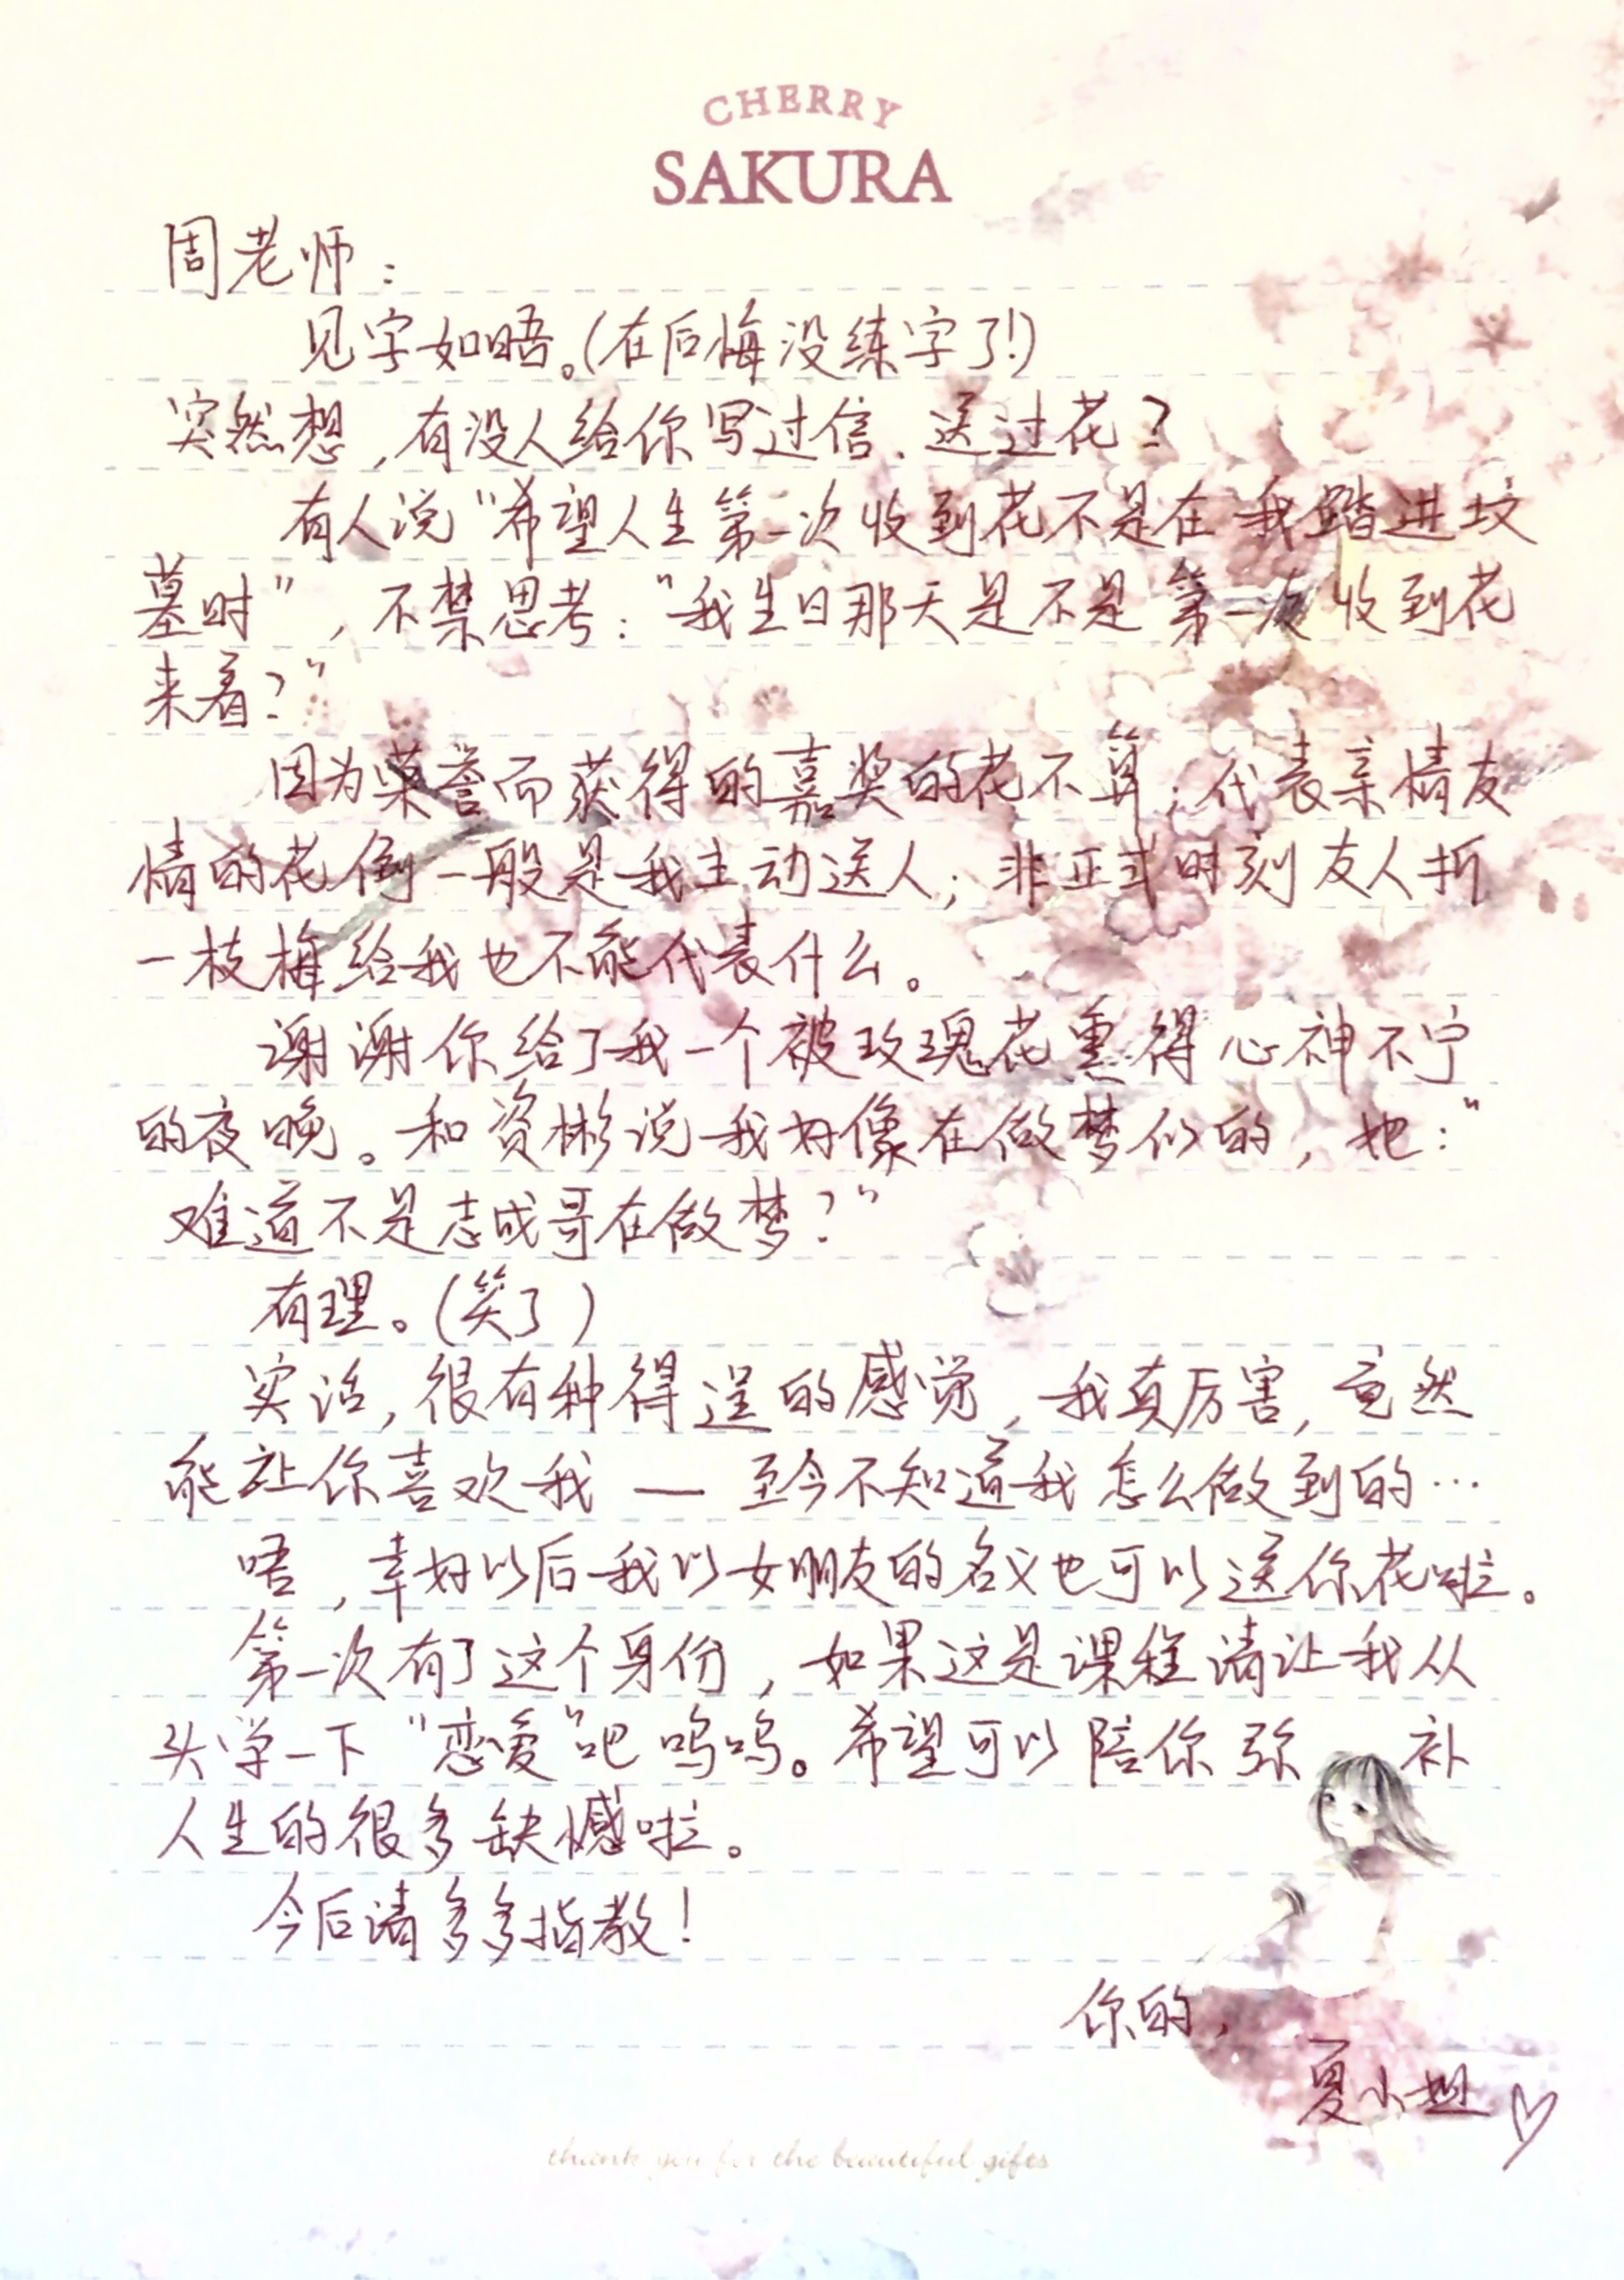 CHERRY
SAKURA
周老师：
见字如晤。（在后悔没练字了！）
突然想，有没人给你写过信、送过花？
有人说“希望人生第一次收到花不是在我踏进坟
墓时”，不禁思考：“我生日那天是不是第一次收到花
来着？”
因为荣誉而获得的嘉奖的花不算；代表亲情友
情的花倒一般是我主动送人；非正式时刻友人折
一枝梅给我也不能代表什么。
谢谢你给了我一个被玫瑰花熏得心神不宁
的夜晚。和资彬说我好像在做梦似的，她：“
难道不是志成哥在做梦？”
有理。（笑了）
实话，很有种得逞的感觉，我真厉害，竟然
能让你喜欢我——至今不知道我怎么做到的…
唔，幸好以后我以女朋友的名义也可以送你花啦。
第一次有了这个身份，如果这是课程请让我从
头学一下“恋爱”吧呜呜。希望可以陪你弥补
人生的很多缺憾啦。
今后请多多指教！
你的，
夏小姐♡
thank you for the beautiful gifts